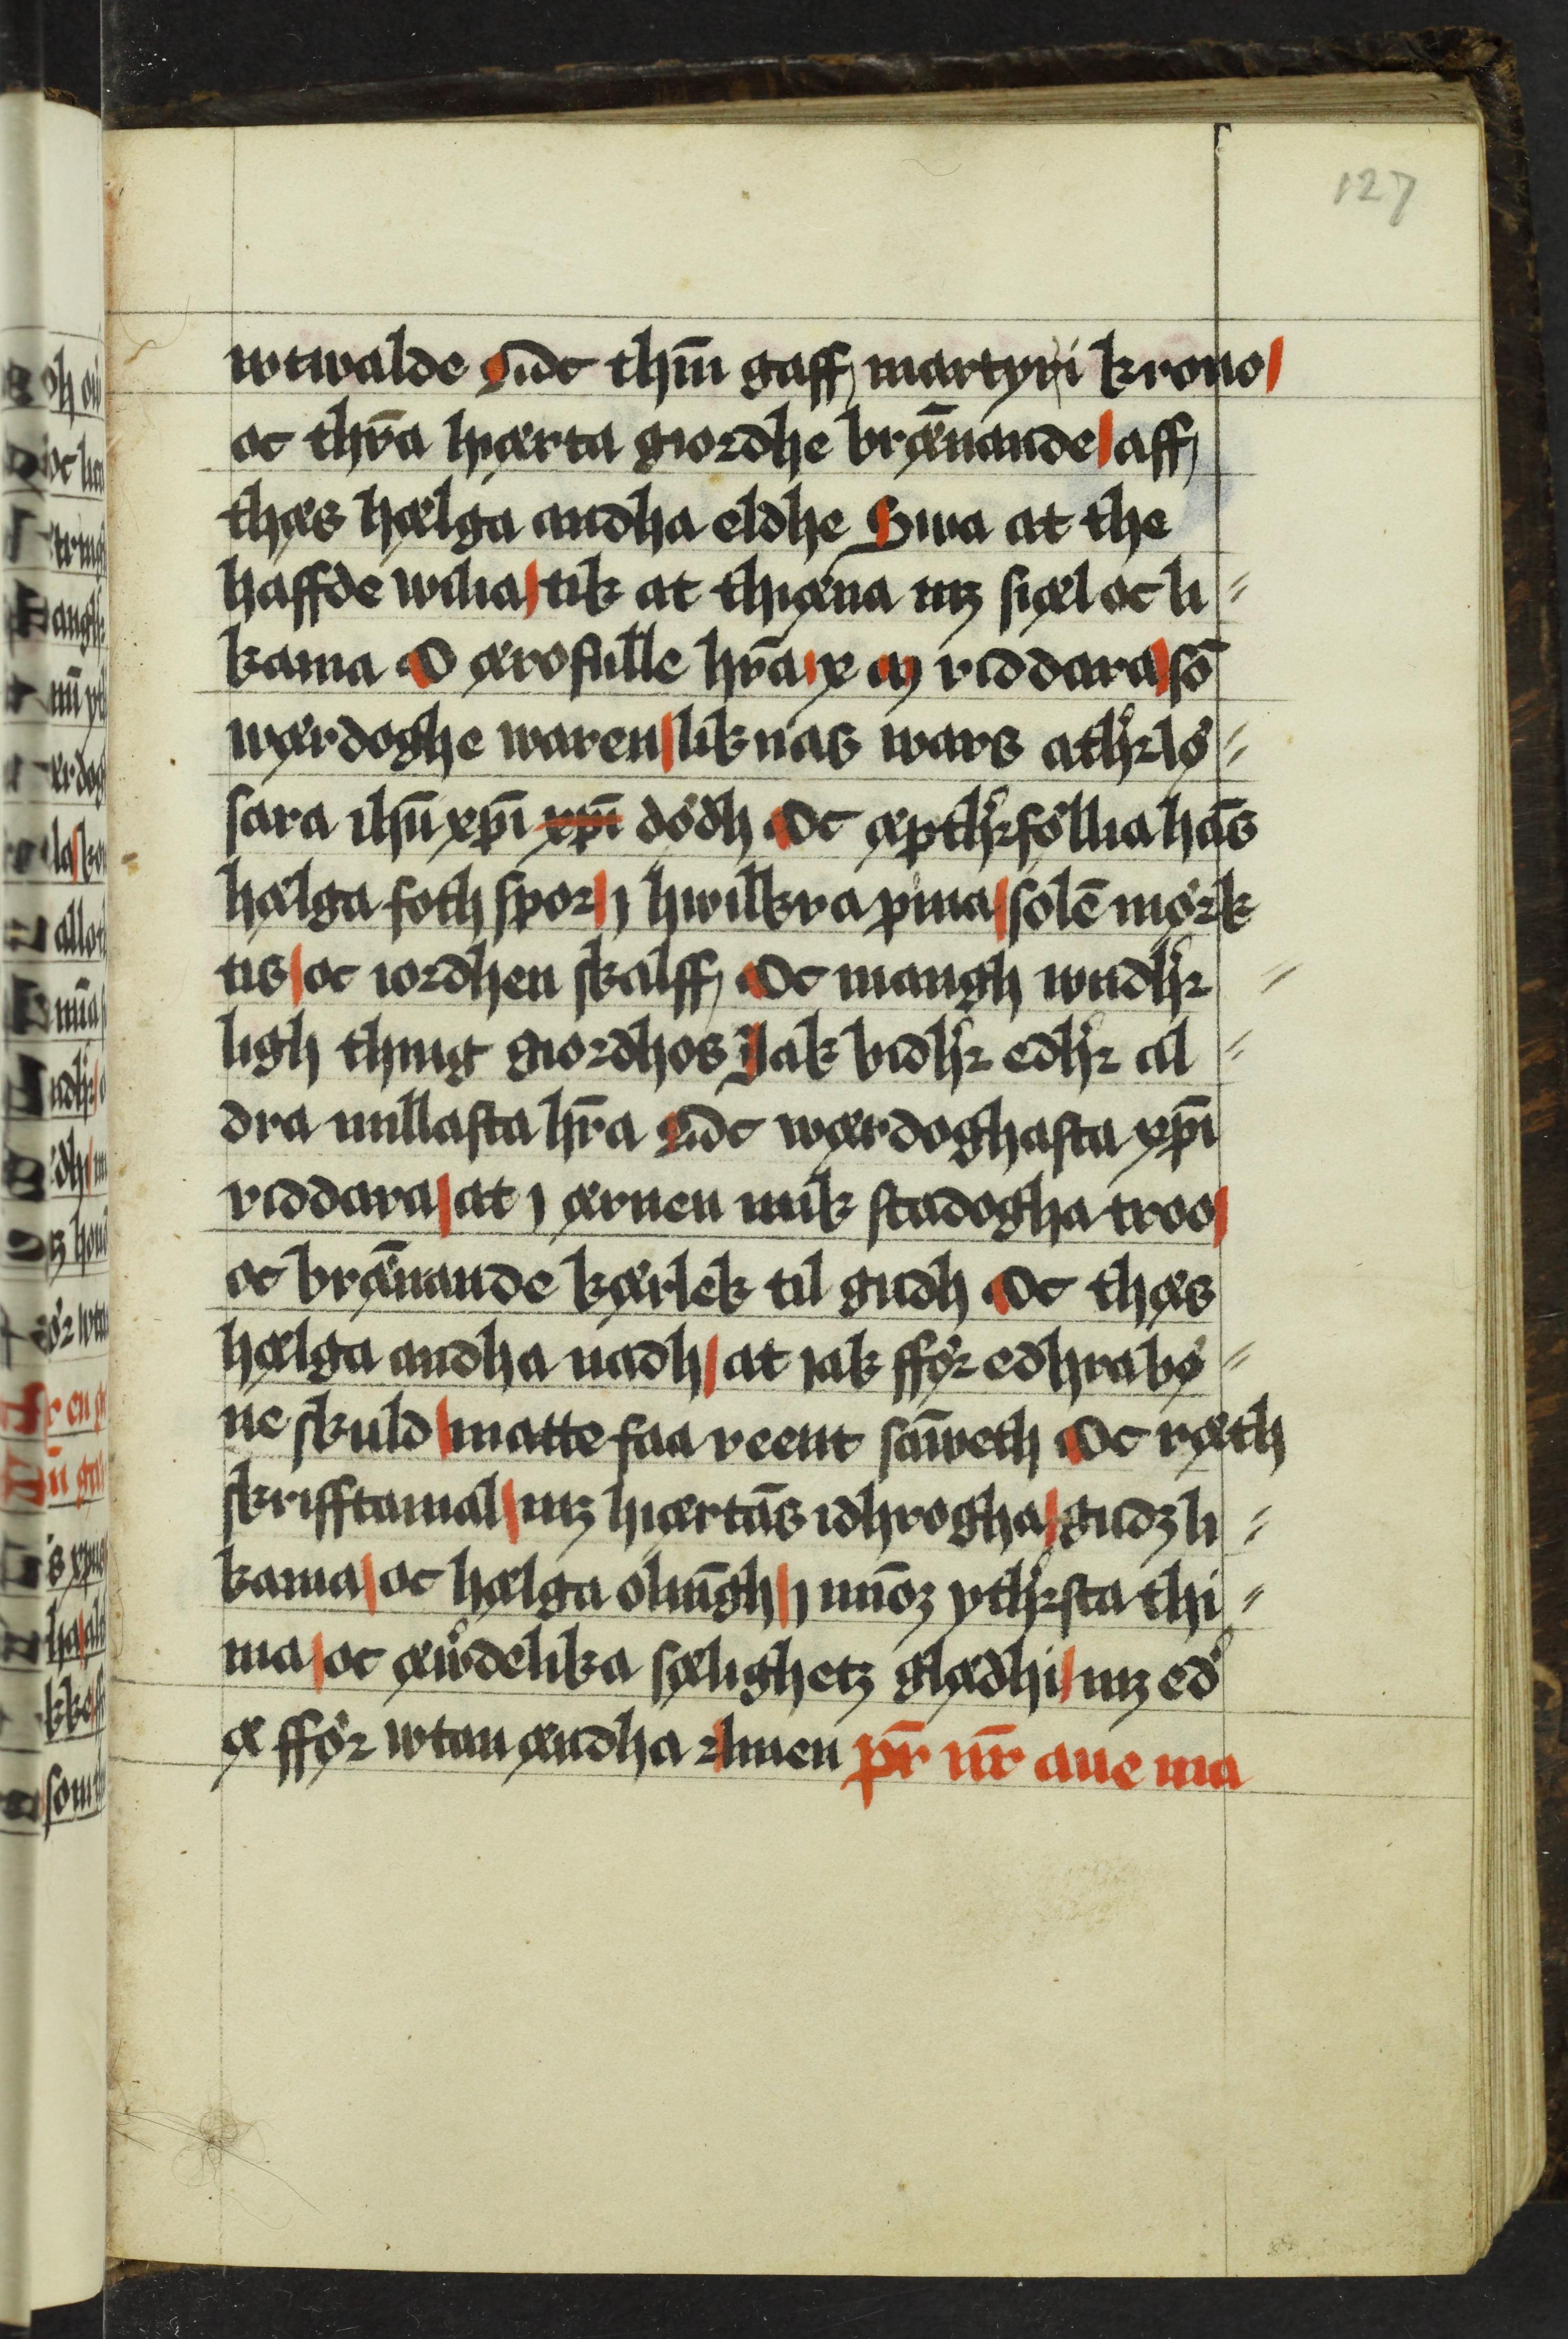 127
wtwalde Oc thm̄ gaff martyri krono /
oc thr̄a hiærta giordhe brænnande / aff
thæs hælga andha eldhe Swa at the
haffde wilia / tik at thiæna mz siæl oc li⸗
kama O ærofulle hr̄a / x m riddara / so̅
wærdoghe waren / liknas wars atherlø⸗
sara ihū xpī xpī dødh Oc æptherføllia ha̅s
hælga foth spor / j hwilkra pina / sole̅ mørk
tis / oc iordhen skalff Oc mangh wndher⸗
ligh thing giordhos Jak bidher edher al⸗
dra millasta hr̄a Oc wærdoghasta xpī
riddara / at j ærnen mik stadogha troo /
oc brænnande kærlek til gudh Oc thæs
hælga andha nadh / at jak ffør edhra bø⸗
ne skuld / matte faa reent sa̅weth Oc ræth
skrifftamal / mz hiærta̅s idhrogha / gudz li⸗
kama / oc hælga olni̅gh / j mi̅oz ythersta thi⸗
ma / oc æwerdelika sælighetz glædhi / mz eder
æ ffør wtan ændha Amen pr̄ nr̄ aue ma